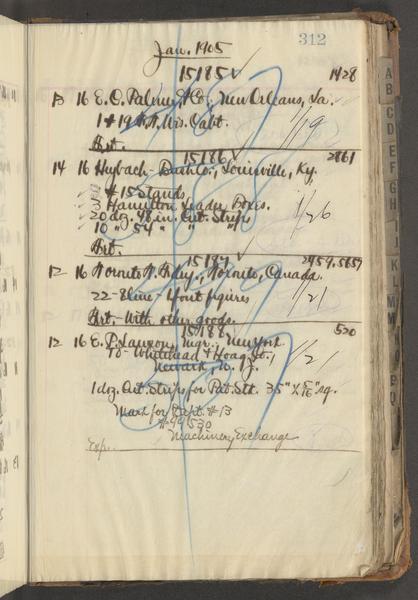 312
Jan. 1905
15185 ✓ 1428
13 16 E. O. Palmer & Co., New Orleans, La.
1 # 19 Cabt.
1/19
Frt.
15186 ✓ 2861
14 16 Heybach-Bush Co., Louisville, Ky.
# 15 Stands
3 Hamilton Leader Boxes.
20 doz. 48 in. Cut. Strips
1/26
10 " 54 " " "
Frt.
15187 ✓ 2959.5657
12 16 Toronto T. Fdry., Toronto, Canada.
22-8 line - 4 font figures
1/21
Frt. - With other goods.
15188 530
12 16 E. P. Lawson, Mgr., New York
To - Whitehead & Hoag Co.,
1/21
Newark, N. J.
1 doz. Cut. Strips for Pat. Stk. 35" x 5/16" sq.
Mark for Dept. # 13
# 99530
Machinery Exchange
Exp.
A
B
C
D
E
F
G
H
I
J
K
L
M